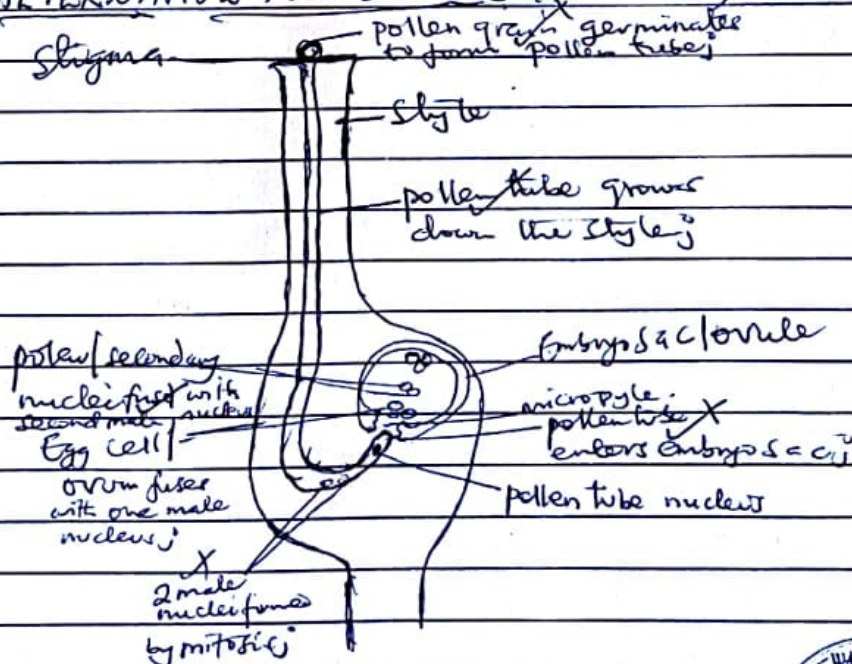 pollen grain germinates
to form pollen tube;
Stigma
style
pollen tube grows
down the style;
Embryo sac/ovule
polar/secondary
nuclei fuse with
second male nucleus
micropyle.
pollen tube
enters embryo sac;
Egg cell/
ovum fuses
with one male
nucleus;
pollen tube nucleus
2 male
nuclei formed
by mitosis;